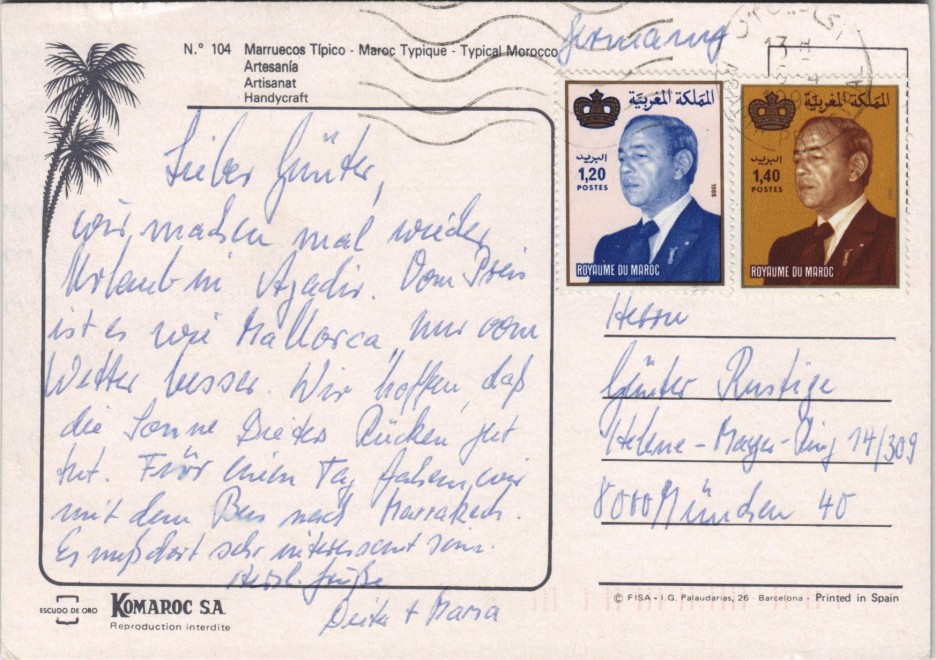 N.° 104 Marruecos Típico - Maroc Typique - Typical Morocco
Artesanía
Artisanat
Handycraft
Germany
المملكة المغربية
البريد
1,20
POSTES
1988
ROYAUME DU MAROC
المملكة المغربية
البريد
1,40
POSTES
ROYAUME DU MAROC
Lieber Günter,
wir machen mal wieder
Urlaub in Agadir. Vom Preis
ist es wie Mallorca, nur vom
Wetter besser. Wir hoffen, daß
die Sonne Dieters Rücken gut
tut. Für einen Tag fahren wir
mit dem Bus nach Marrakech.
Es muß dort sehr interessant sein.
Herzl. Grüße
Dieter + Maria
Herrn
Günter Rustige
Helene-Mayer-Ring 14/309
8000 München 40
ESCUDO DE ORO
KOMAROC S.A.
Reproduction interdite
© FISA - I.G. Palaudarias, 26 - Barcelona - Printed in Spain